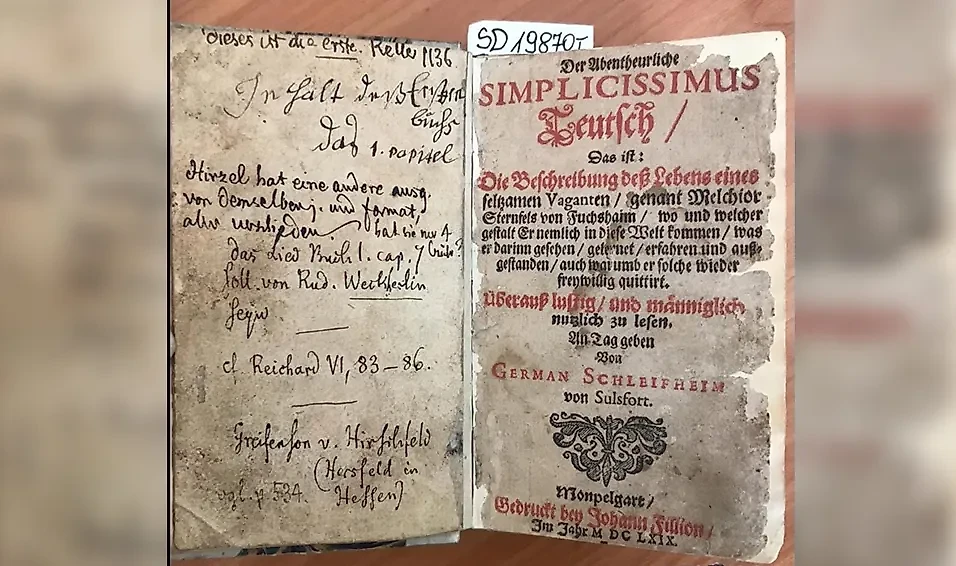 dieses ist die erste. Keller 1136
In halt deß Ersten
buchs
das 1. capitel
Hirzel hat eine andere ausg.
von demselben j. und format,
aber verschieden. hat sie nur 4
das Lied Buch 1. cap. 7
soll von Rud. Weckherlin
seyn
cf. Reichard VI, 83–86.
Greifenson v. Hirschfeld
(Hersfeld in
vgl. p 534. Hessen)
SD 19870
Der Abentheurliche
SIMPLICISSIMUS
Teutsch/
Das ist:
Die Beschreibung deß Lebens eines
seltzamen Vaganten/ genant Melchior
Sternfels von Fuchshaim/ wo und welcher
gestalt Er nemlich in diese Welt kommen/ was
er darinn gesehen/ gelernet/ erfahren und auß-
gestanden/ auch warumb er solche wieder
freywillig quittirt.
Überauß lustig/ und männiglich
nutzlich zu lesen.
An Tag geben
Von
GERMAN SCHLEIFHEIM
von Sulsfort.
Monpelgart/
Gedruckt bey Johann Fillion/
Im Jahr M DC LXIX.